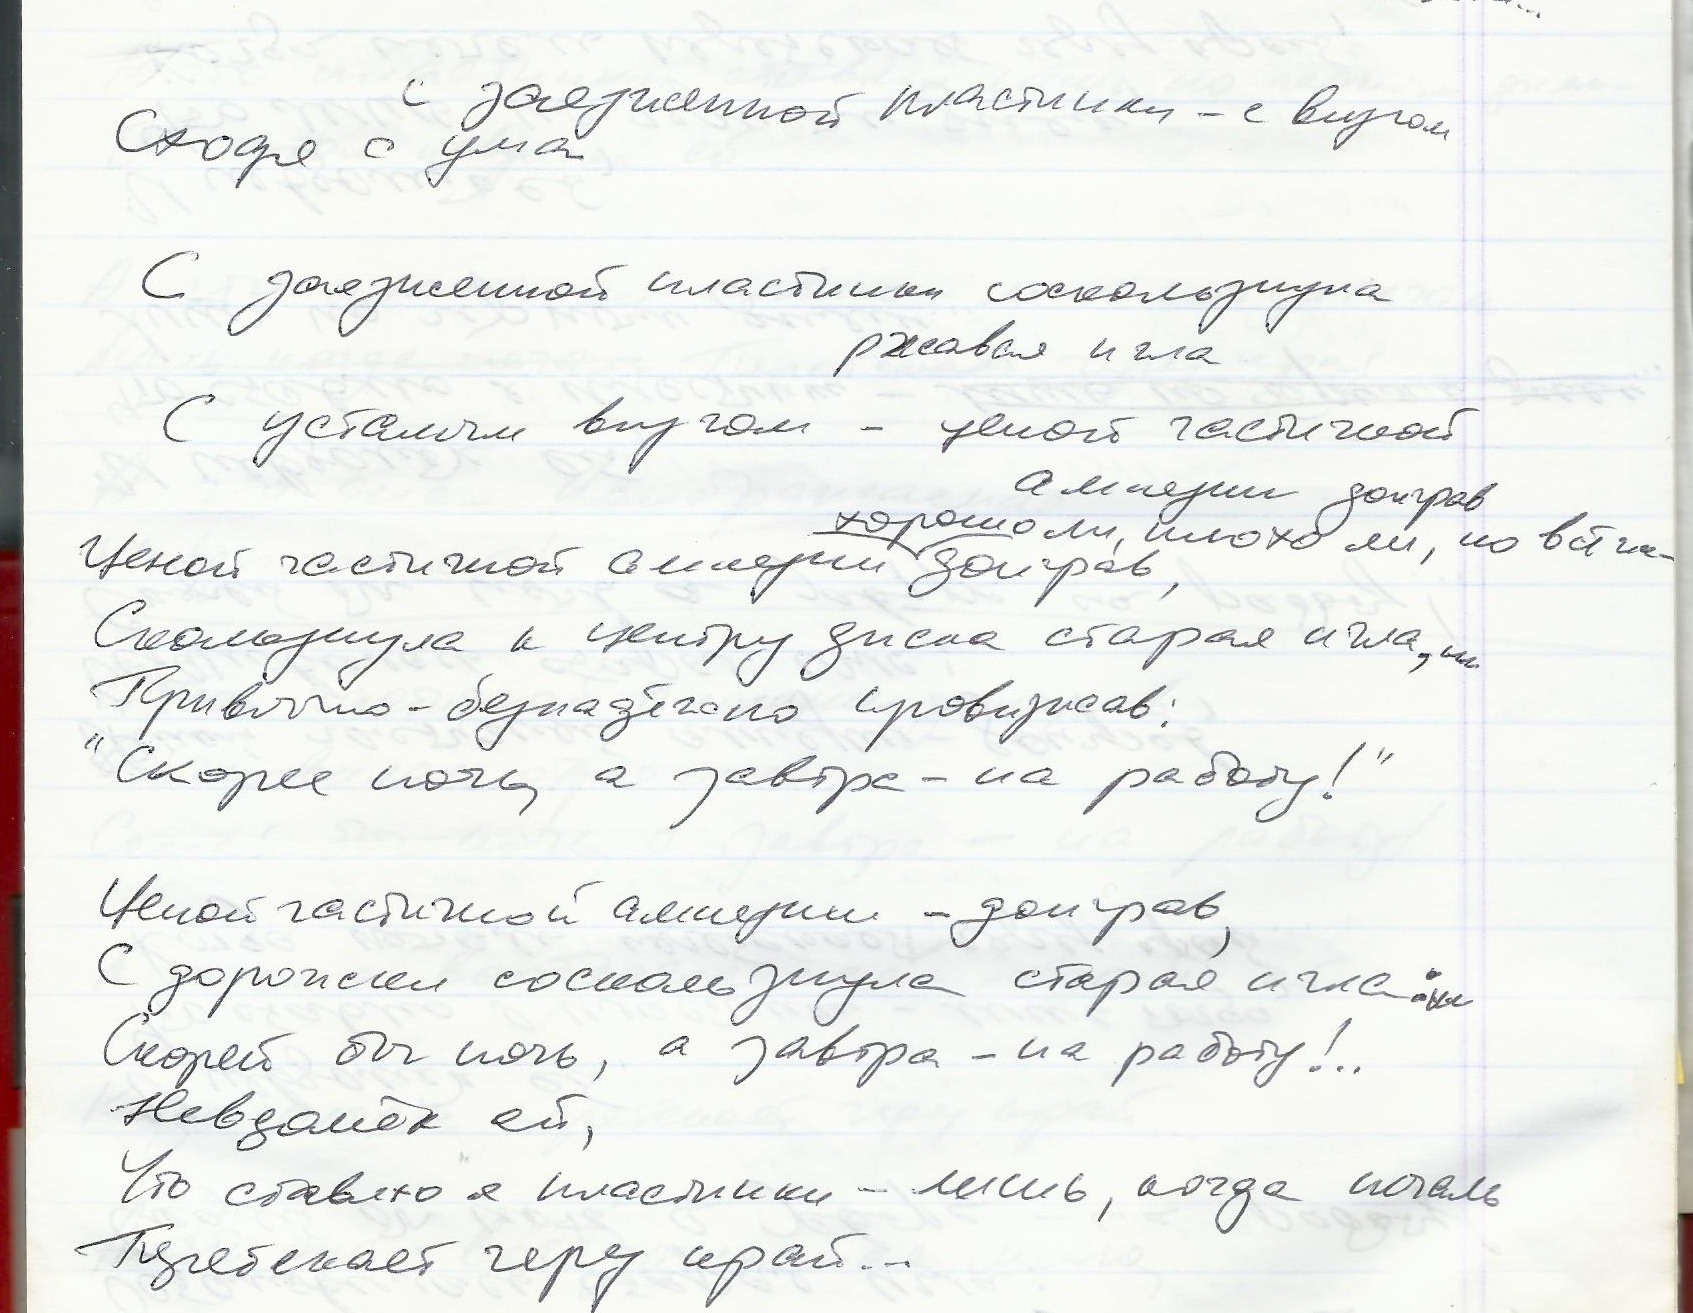 с заезженной пластинки – с визгом
Сходя с ума
С заезженной пластинки соскользнула
ржавая игла
С усталым визгом – ценой частичной
амнезии доиграв
хорошо ли, плохо ли, но всё же
Ценой частичной амнезии доиграв,
Скользнула к центру диска старая игла,
Привычно-безнадёжно провизжав:
"Скорее ночь, а завтра – на работу!"
Ценой частичной амнезии – доиграв,
С дорожки соскользнула старая игла:
Скорей бы ночь, а завтра – на работу!..
Невдомёк ей,
Что ставлю я пластинки – лишь, когда печаль
Перетекает через край...